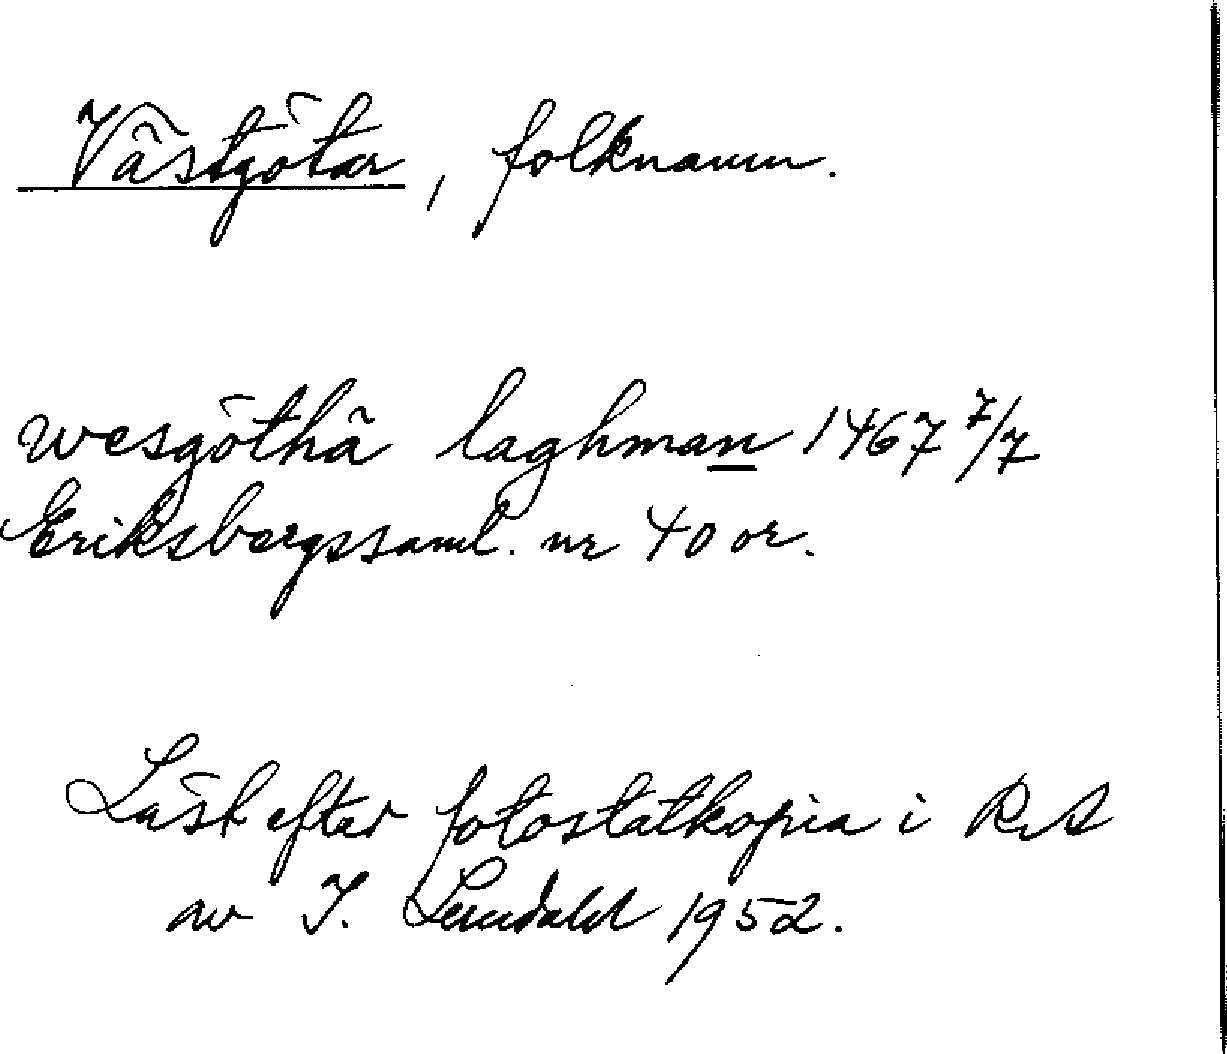 Västgötar, folknamn.
wesgöthä laghman 1467 7/7
Eriksbergssaml. nr 40 or.
Läst efter fotostatkopia i RA
av I. Lundahl 1952.